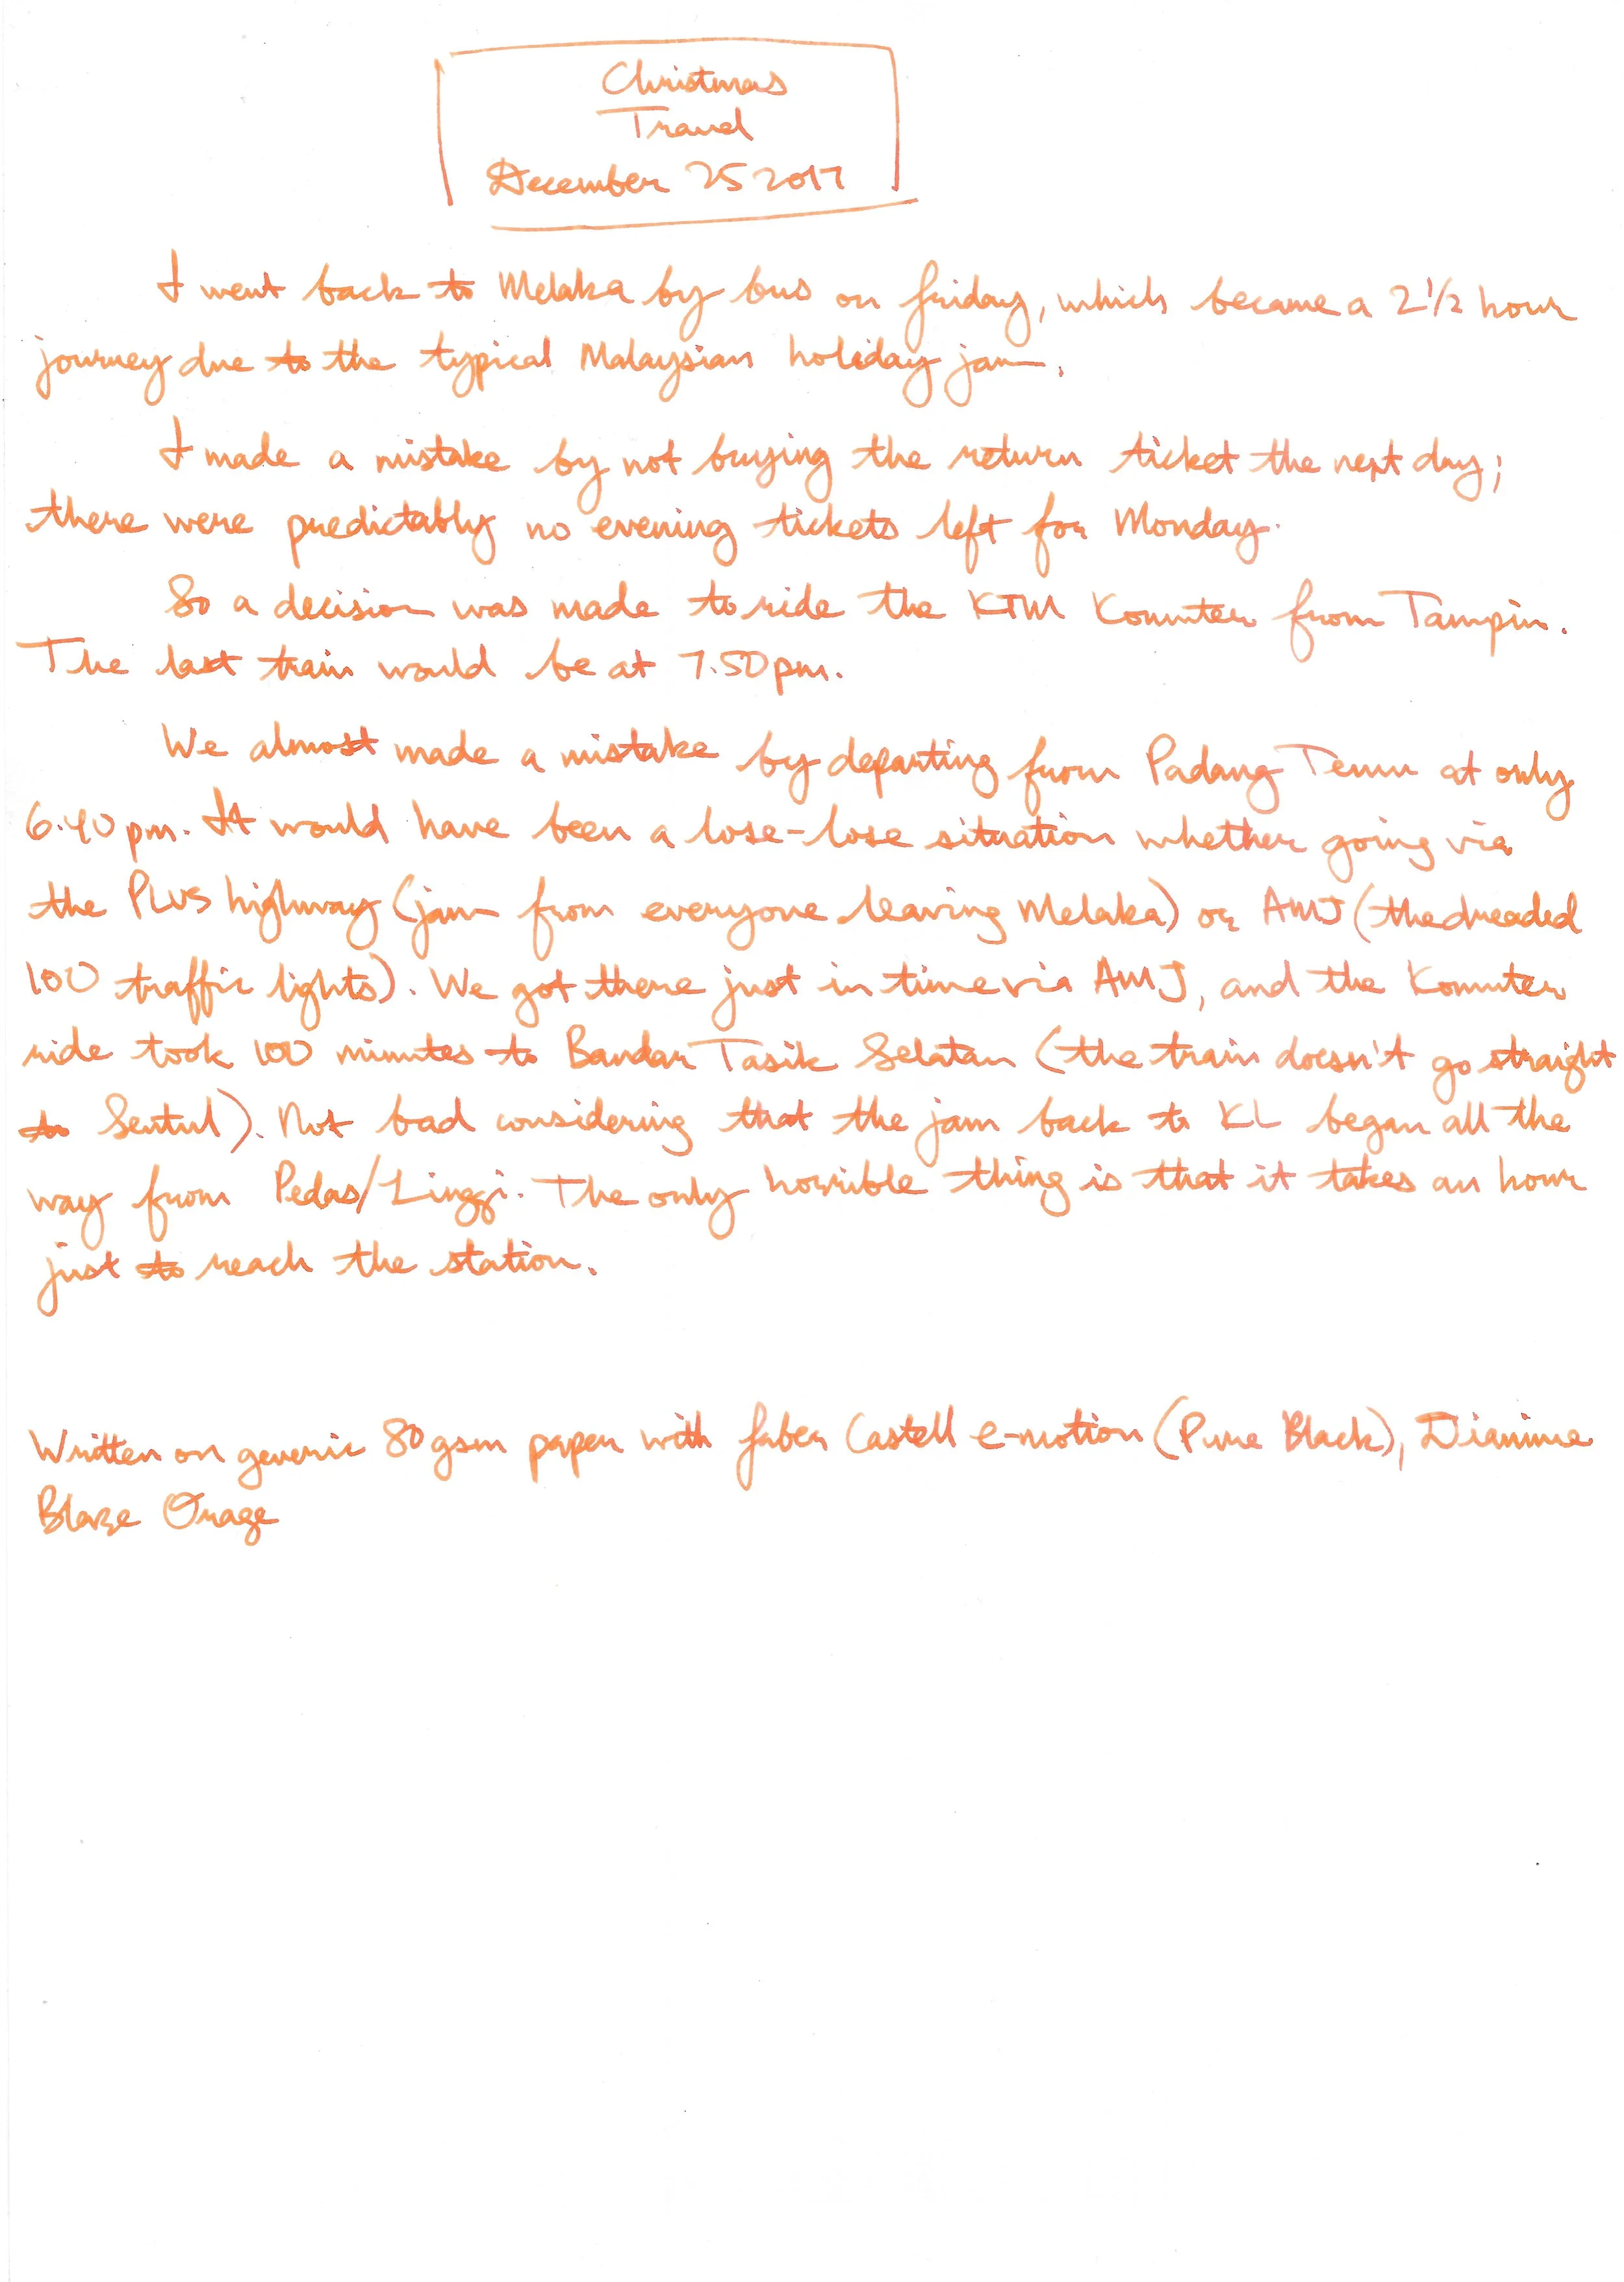 Christmas
Travel
December 25 2017
I went back to Melaka by bus on friday, which became a 2 1/2 hour
journey due to the typical Malaysian holiday jam.
I made a mistake by not buying the return ticket the next day;
there were predictably no evening tickets left for Monday.
So a decision was made to ride the KTM Komuter from Tampin.
The last train would be at 7.50pm.
We almost made a mistake by departing from Padang Temu at only
6.40pm. It would have been a lose-lose situation whether going via
the PLUS highway (jam from everyone leaving Melaka) or AMJ (the dreaded
100 traffic lights). We got there just in time via AMJ, and the Komuter
ride took 100 minutes to Bandar Tasik Selatan (the train doesn't go straight
to Sentul). Not bad considering that the jam back to KL began all the
way from Pedas/Linggi. The only horrible thing is that it takes an hour
just to reach the station.
Written on generic 80gsm paper with faber Castell e-motion (Pure Black), Diamine
Blaze Orage